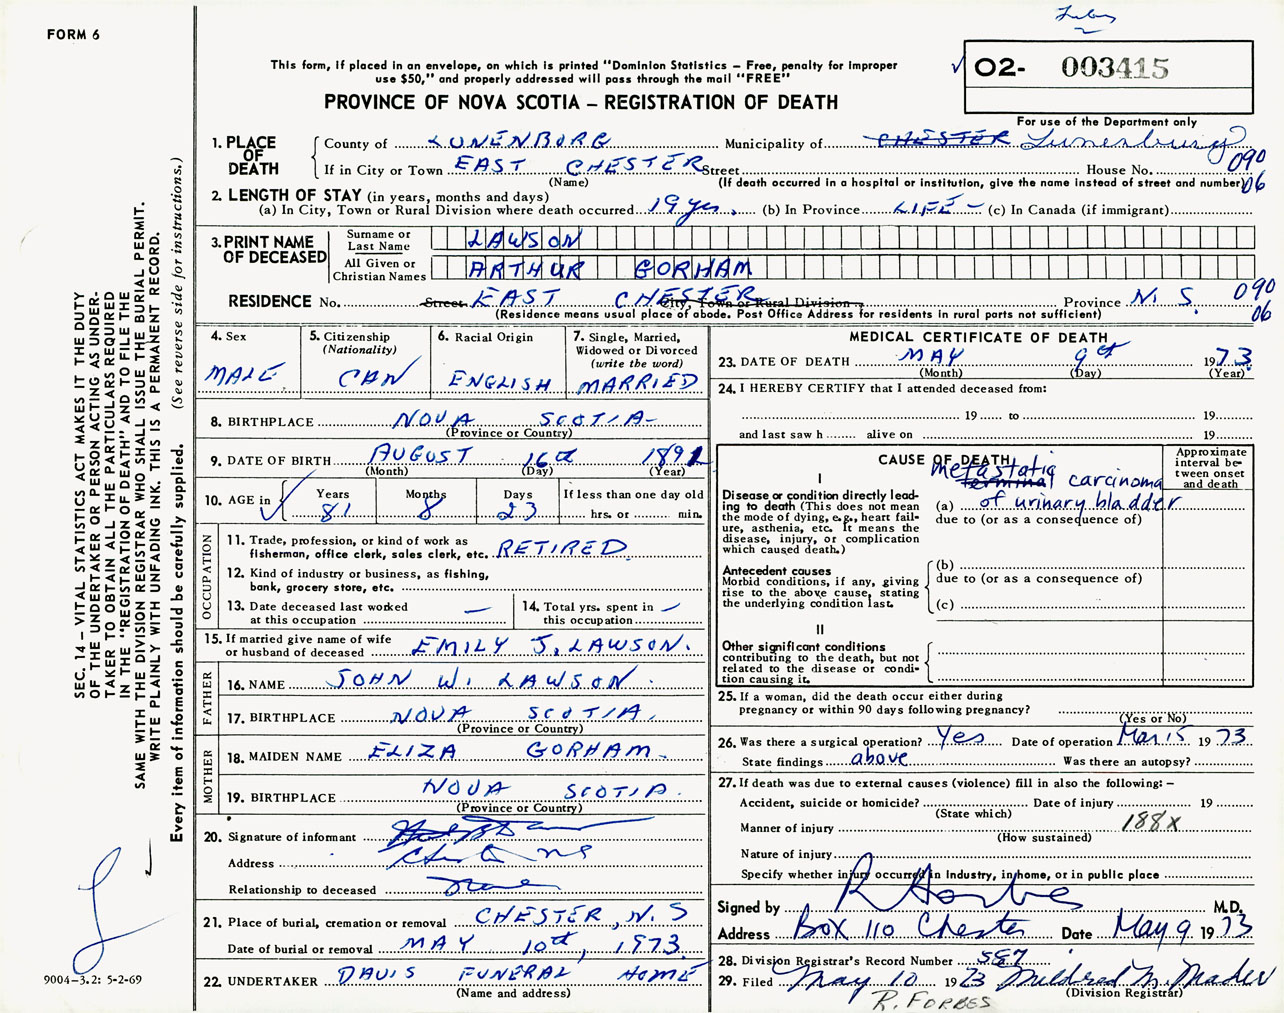 FORM 6
This form, if placed in an envelope, on which is printed "Dominion Statistics – Free, penalty for improper
use $50," and properly addressed will pass through the mail "FREE"
PROVINCE OF NOVA SCOTIA – REGISTRATION OF DEATH
O2- 003415
For use of the Department only
SEC. 14 – VITAL STATISTICS ACT MAKES IT THE DUTY
OF THE UNDERTAKER OR PERSON ACTING AS UNDER-
TAKER TO OBTAIN ALL THE PARTICULARS REQUIRED
IN THE "REGISTRATION OF DEATH" AND TO FILE THE
SAME WITH THE DIVISION REGISTRAR WHO SHALL ISSUE THE BURIAL PERMIT.
WRITE PLAINLY WITH UNFADING INK. THIS IS A PERMANENT RECORD.
Every item of information should be carefully supplied. (See reverse side for instructions.)
9004-3.2: 5-2-69
1. PLACE OF DEATH
County of LUNENBORG Municipality of CHESTER Lunenburg
If in City or Town EAST CHESTER Street House No. 090
(Name) (If death occurred in a hospital or institution, give the name instead of street and number) 06
2. LENGTH OF STAY (in years, months and days)
(a) In City, Town or Rural Division where death occurred 19 yrs. (b) In Province LIFE – (c) In Canada (if immigrant)
3. PRINT NAME OF DECEASED
Surname or Last Name LAWSON
All Given or Christian Names ARTHUR GORHAM
RESIDENCE No. Street EAST CHESTER City, Town or Rural Division Province N. S. 090
(Residence means usual place of abode. Post Office Address for residents in rural parts not sufficient) 06
4. Sex MALE
5. Citizenship (Nationality) CAN
6. Racial Origin ENGLISH
7. Single, Married, Widowed or Divorced (write the word) MARRIED
8. BIRTHPLACE NOVA SCOTIA
(Province or Country)
9. DATE OF BIRTH AUGUST 16th 1891
(Month) (Day) (Year)
10. AGE in Years 81 Months 8 Days 23 If less than one day old hrs. or min.
OCCUPATION
11. Trade, profession, or kind of work as
fisherman, office clerk, sales clerk, etc. RETIRED
12. Kind of industry or business, as fishing,
bank, grocery store, etc.
13. Date deceased last worked
at this occupation —
14. Total yrs. spent in
this occupation —
15. If married give name of wife
or husband of deceased EMILY J. LAWSON.
FATHER
16. NAME JOHN W. LAWSON
17. BIRTHPLACE NOVA SCOTIA
(Province or Country)
MOTHER
18. MAIDEN NAME ELIZA GORHAM
19. BIRTHPLACE NOVA SCOTIA
(Province or Country)
20. Signature of informant
Address
Relationship to deceased
21. Place of burial, cremation or removal CHESTER, N. S
Date of burial or removal MAY 10th, 1973
22. UNDERTAKER DAVIS FUNERAL HOME
(Name and address)
MEDICAL CERTIFICATE OF DEATH
23. DATE OF DEATH MAY 9th 1973
(Month) (Day) (Year)
24. I HEREBY CERTIFY that I attended deceased from:
19 to 19
and last saw h alive on 19
CAUSE OF DEATH
Approximate interval between onset and death
I
Disease or condition directly lead-
ing to death (This does not mean
the mode of dying, e.g., heart fail-
ure, asthenia, etc. It means the
disease, injury, or complication
which caused death.)
metastatic
terminal carcinoma
(a) of urinary bladder
due to (or as a consequence of)
Antecedent causes
Morbid conditions, if any, giving
rise to the above cause, stating
the underlying condition last.
(b)
due to (or as a consequence of)
(c)
II
Other significant conditions
contributing to the death, but not
related to the disease or condi-
tion causing it.
25. If a woman, did the death occur either during
pregnancy or within 90 days following pregnancy?
(Yes or No)
26. Was there a surgical operation? Yes Date of operation Mar 15 1973
State findings above Was there an autopsy?
27. If death was due to external causes (violence) fill in also the following: –
Accident, suicide or homicide? Date of injury 19
(State which)
Manner of injury 188X
(How sustained)
Nature of injury
Specify whether injury occurred in Industry, in home, or in public place
Signed by R Forbes M.D.
Address Box 110 Chester Date May 9 1973
28. Division Registrar's Record Number 587
29. Filed May 10 1973 Mildred M. Mader
(Division Registrar)
R. FORBES